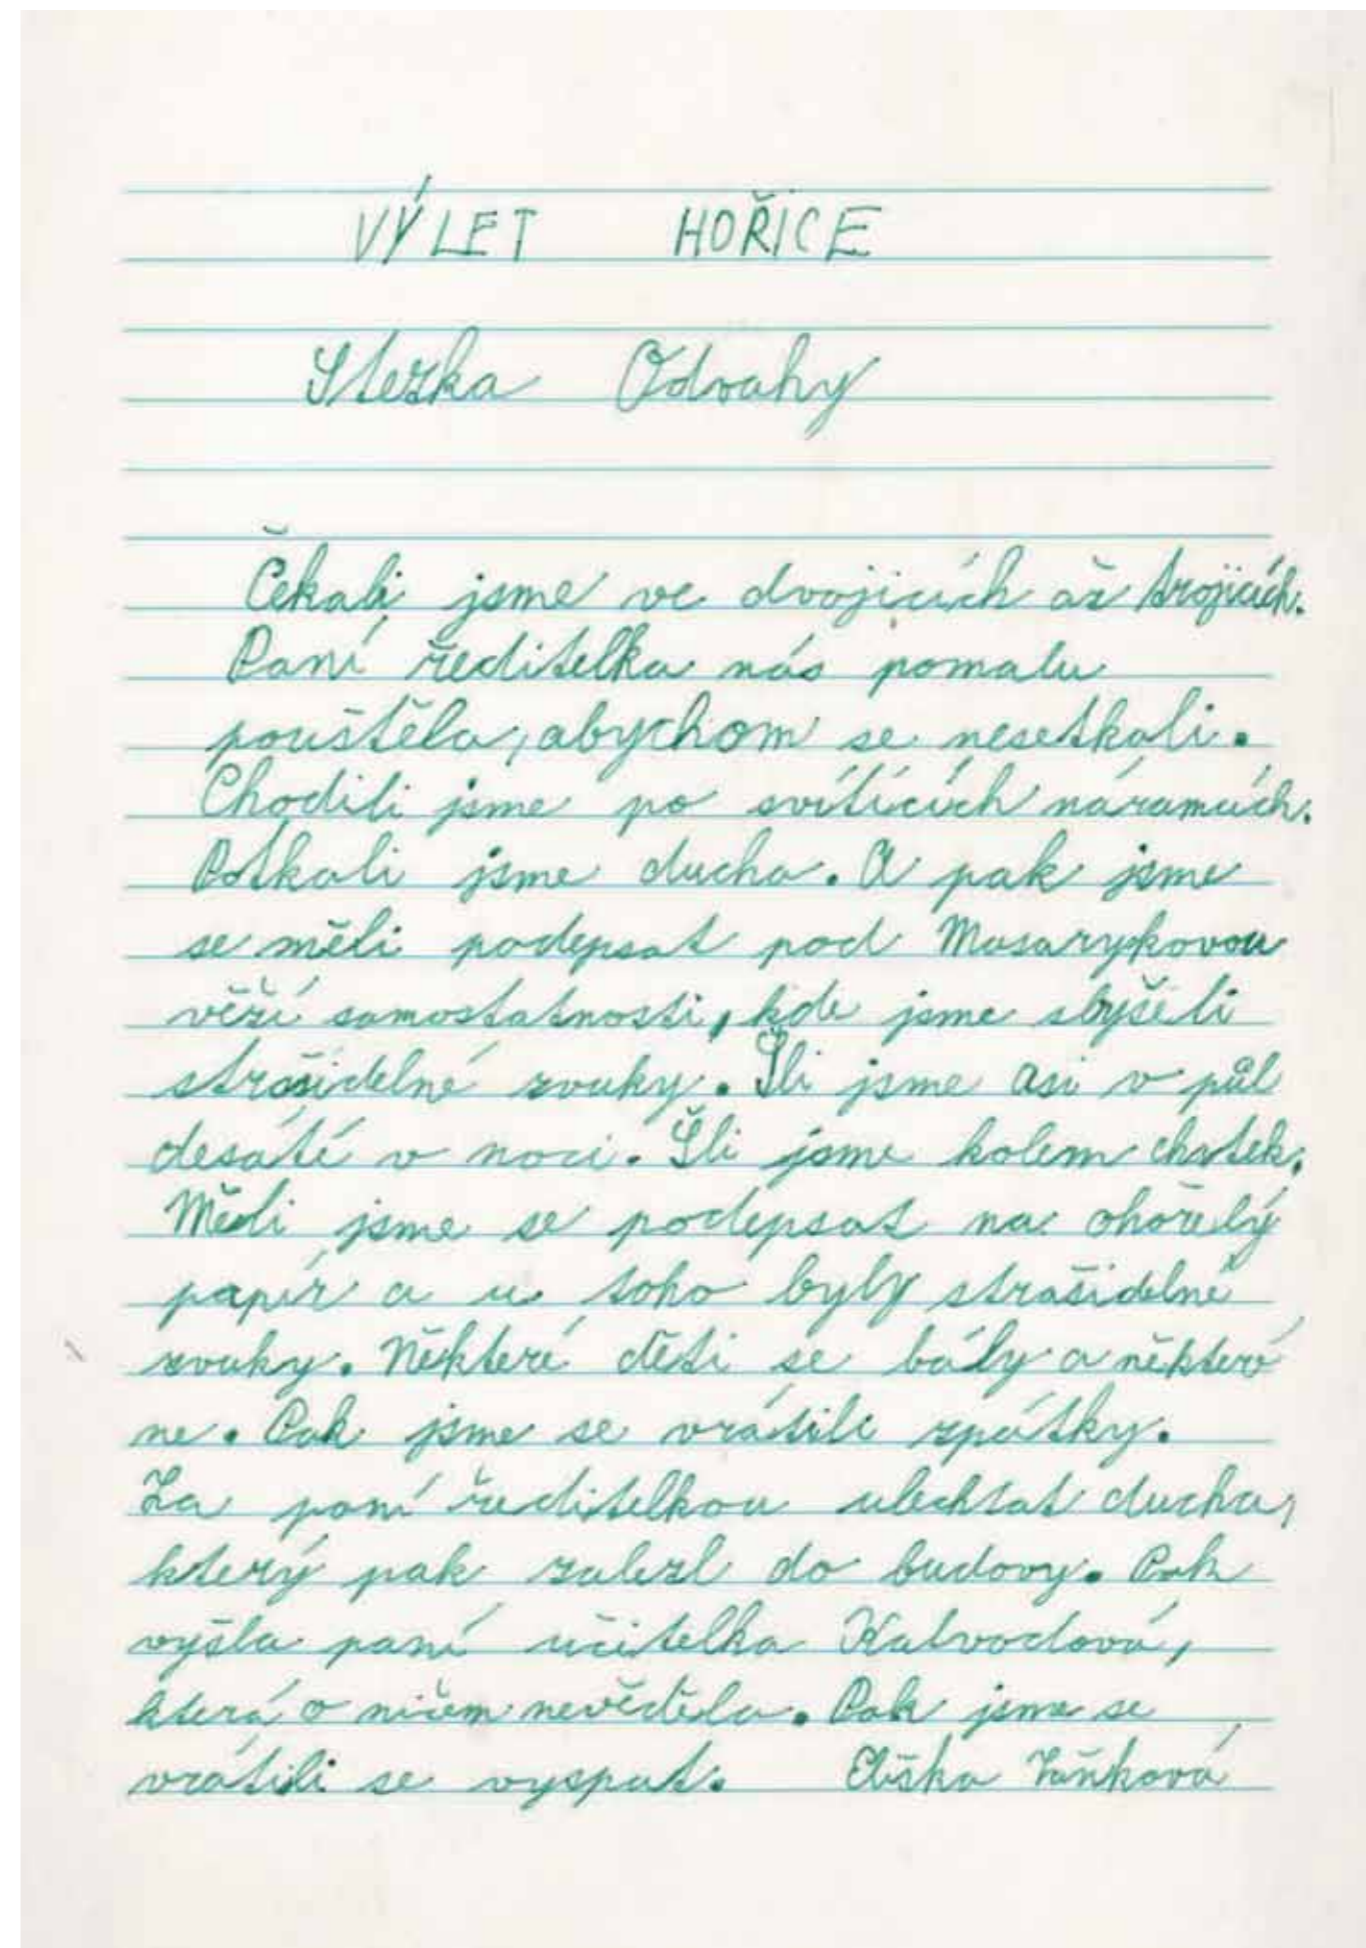 VÝLET HOŘICE
Stezka Odvahy
Čekali jsme ve dvojicích až trojicích.
Paní ředitelka nás pomalu
pouštěla, abychom se nesetkali.
Chodili jsme po svítících náramcích.
Potkali jsme ducha. A pak jsme
se měli podepsat pod Masarykovou
věží samostatnosti, kde jsme slyšeli
strašidelné zvuky. Šli jsme asi v půl
desáté v noci. Šli jsme kolem chatek.
Měli jsme se podepsat na ohořelý
papír a u toho byly strašidelné
zvuky. Některé děti se bály a některé
ne. Pak jsme se vrátili zpátky.
Za paní ředitelkou ulechtat ducha,
který pak zalezl do budovy. Pak
vyšla paní učitelka Kalvodová,
která o ničem nevěděla. Pak jsme se
vrátili se vyspat. Eliška Vaňková